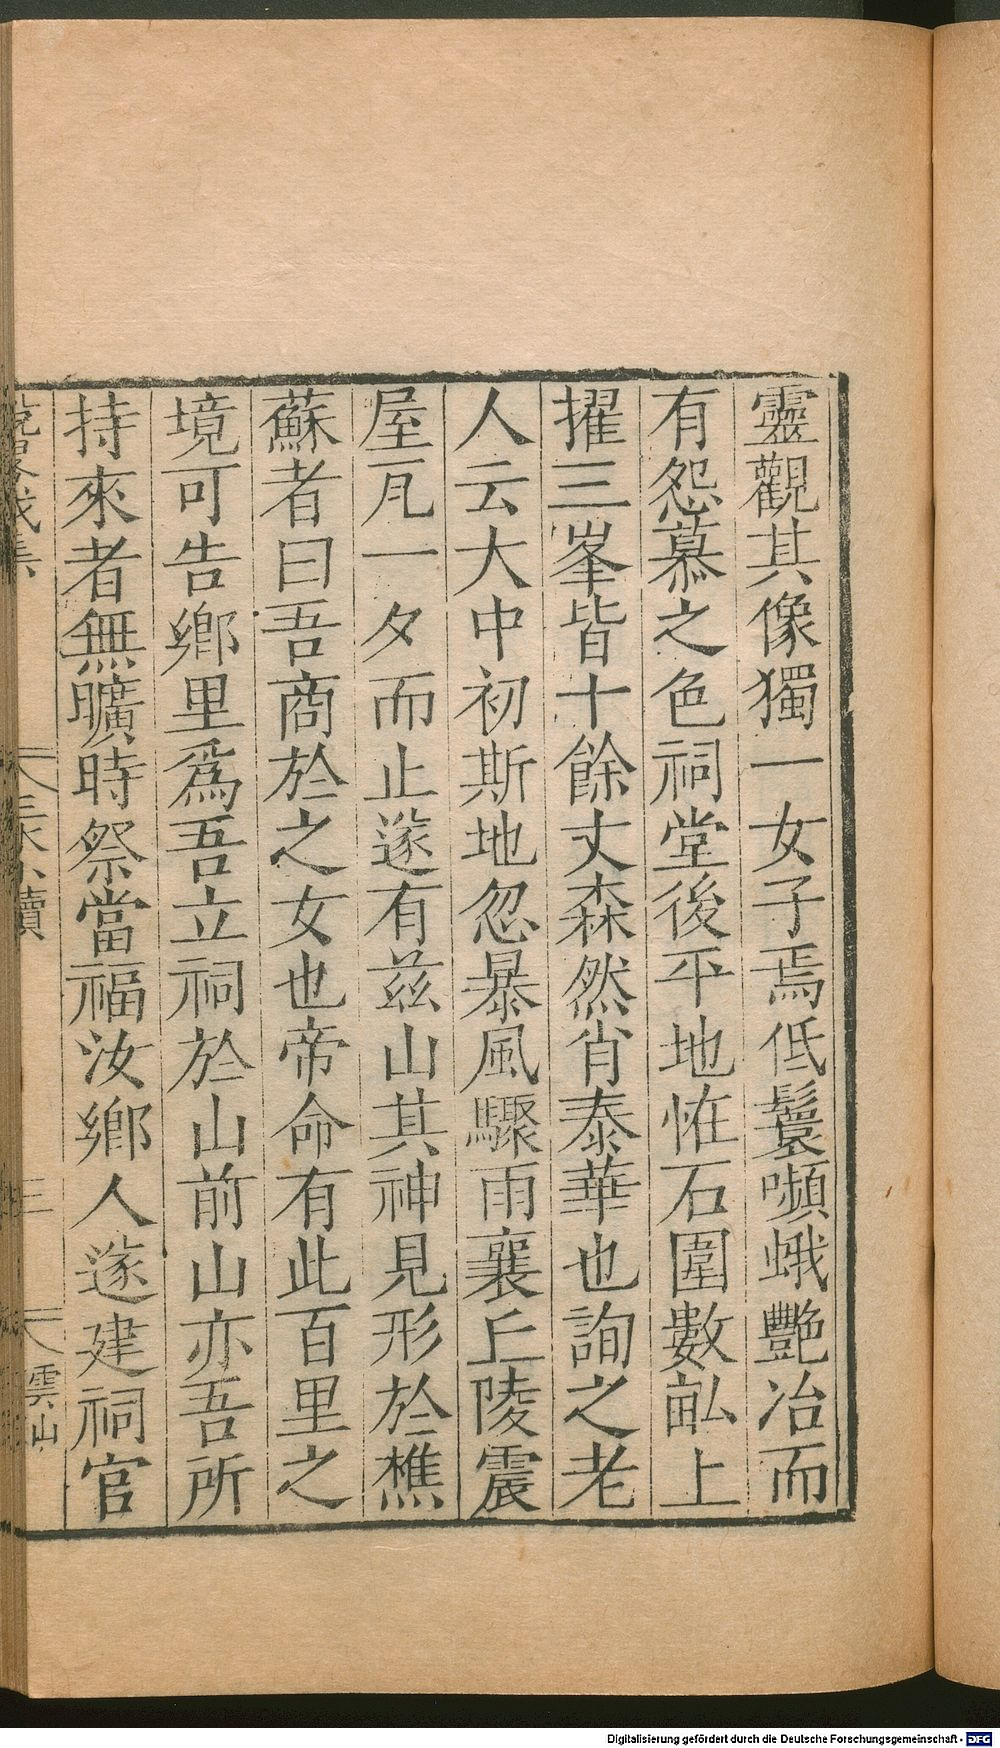 靈觀其像獨一女子焉低鬟嚬蛾艷冶而
有怨慕之色祠堂後平地恠石圍數畝上
擢三峯皆十餘丈森然肖泰華也詢之老
人云大中初斯地忽暴風驟雨襄丘陵震
屋瓦一夕而止遂有兹山其神見形於樵
蘇者曰吾商於之女也帝命有此百里之
境可告鄉里爲吾立祠於山前山亦吾所
持來者無曠時祭當福汝鄉人遂建祠官
三水小牘
三
雲山
Digitalisierung gefördert durch die Deutsche Forschungsgemeinschaft - DFG